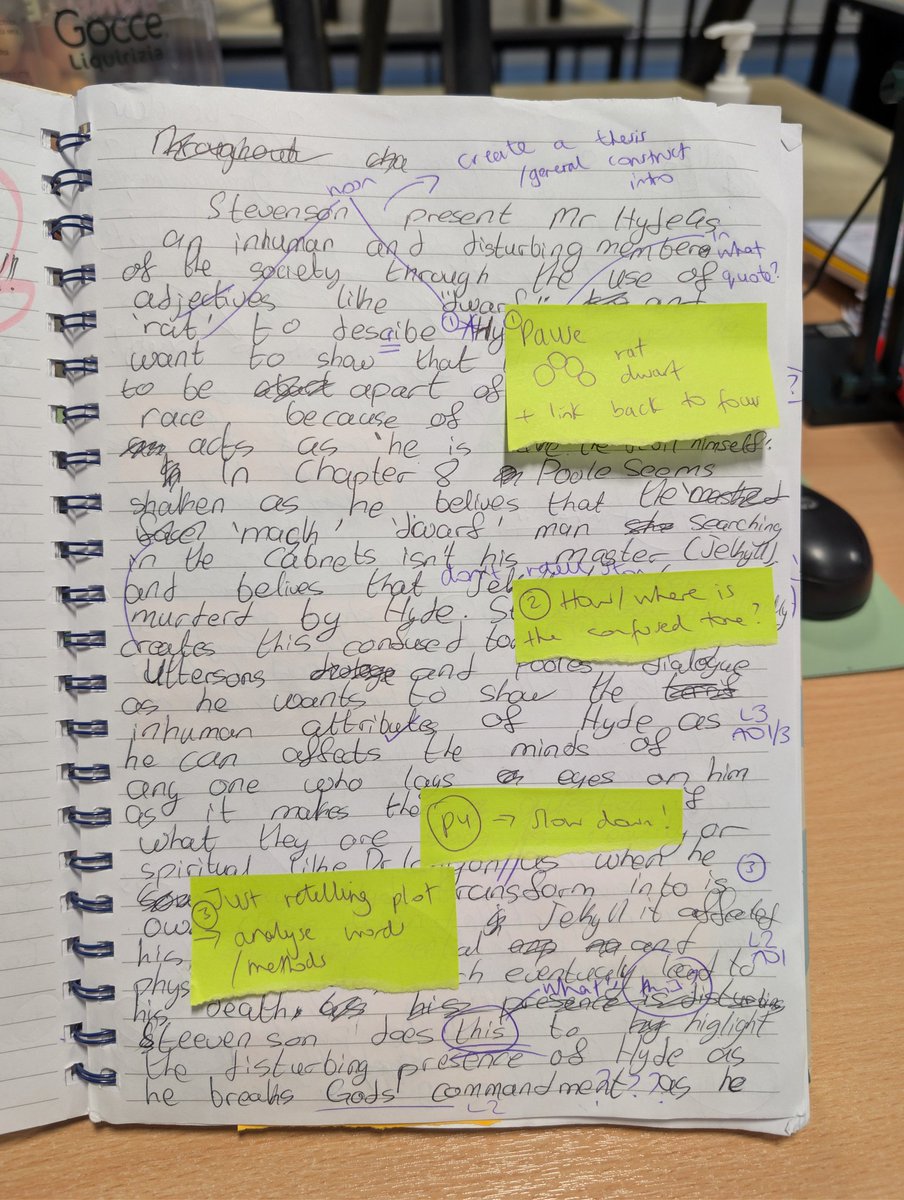 Gocce
Liquirizia
Throughout cha
create a thesis
/general construct
intro
noun
Stevenson present Mr Hyde as
an inhuman and disturbing members
in what
quote?
of the society through the use of
adjectives like "dwarf" to and
'rat' to describe Hy
want to show that
to be apart of
race because of
?
acts as 'he is himself'.
① Pause
rat
dwarf
+ link back to focus
In Chapter 8 Poole Seems
shaken as he belives that the masked
'mach' 'dwarf' man searching
in the Cabnets isn't his master (Jekyll)
don't retell story
and belives that Je
murderd by Hyde. S
creates this confused to
② How/where is
the confused tone?
Uttersons and Pooles dialogue
as he wants to show the
inhuman attributes of Hyde as
L3
AO1/3
he can affects the minds of
any one who lays eyes on him
as it makes the
what they are or
P4 → Slow down!
spiritual like Dr Lanyon us when he
③
transform into is
ow Jekyll it affected
his and
L2
AO1
phys ch eventually lead to
③ Just retelling plot
→ analyse word
/methods
what?
this
his death. his presence is disturbing
Steevenson does this to higlight
the disturbing presence of Hyde as
he breaks Gods' commandment??? as he
L2